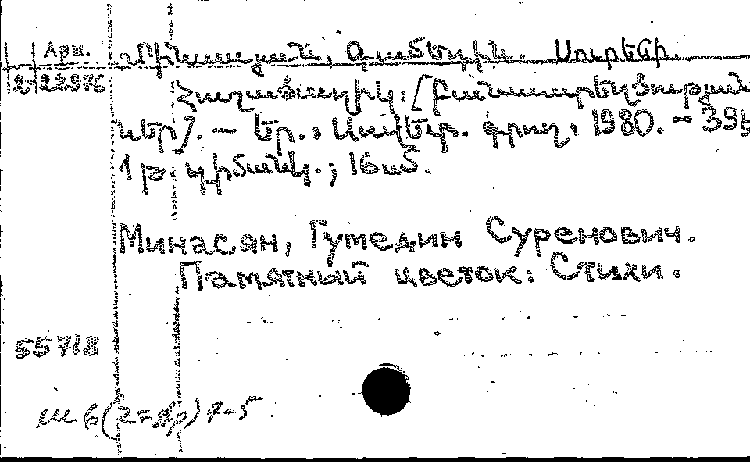 Арш. Մինասյան, Գումեդին Սուրենի.
2-22976 Հուշածաղիկ. [Բանաստեղծություն-
ներ]. — Եր., Սովետ. գրող, 1980. — 39
1 թ. դիմանկ.; 16 սմ.
Минасян, Гумедин Суренович.
Памятный цветок: Стихи.
55718